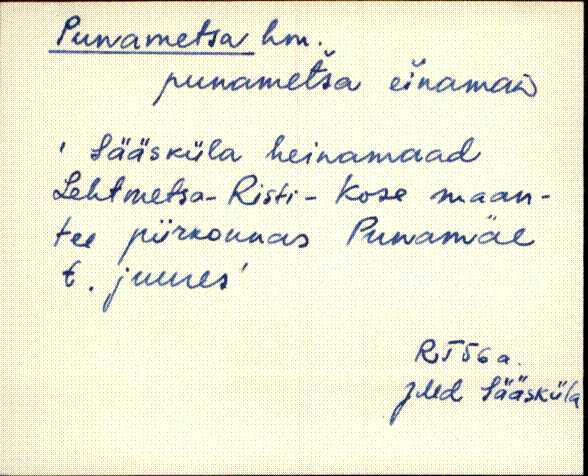 Punametsa hm.
punametša eìnamaìD
' Sääsküla heinamaad
Lehtmetsa-Risti-Kose maan-
tee piirkonnas Punamäe
t. juures'
RT56a.
JMd Sääsküla